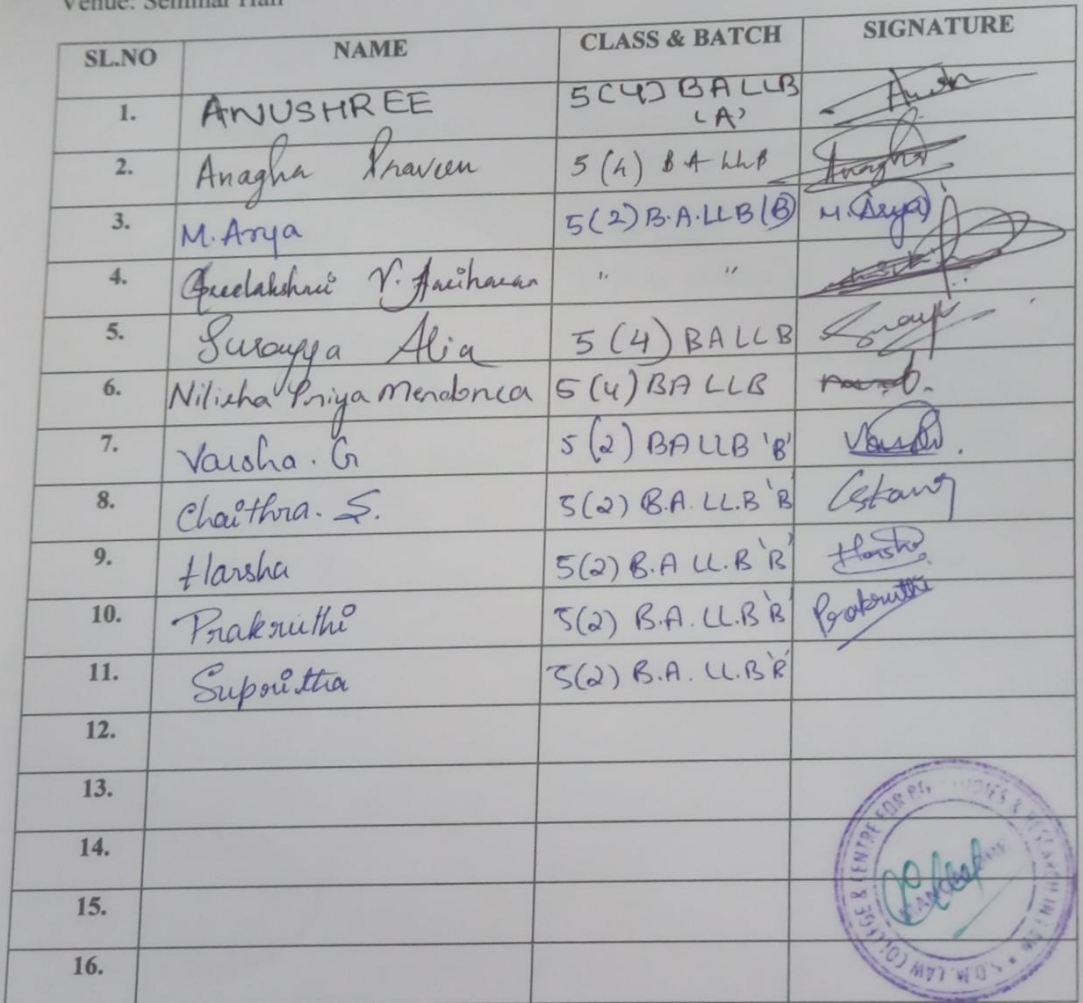 Venue: Seminar Hall
SL.NO NAME CLASS & BATCH SIGNATURE
1. ANUSHREE 5(4) BA LLB (A)
2. Anagha Praveen 5(4) BA LLB Anagha
3. M. Arya 5(2) B.A.LLB (B) M. Arya
4. Sreelakshmi V. Hariharan " "
5. Surayya Alia 5(4) BA LLB
6. Nilisha Priya Mendonca 5(4) BA LLB
7. Varsha. G 5(2) BA LLB 'B'
8. Chaithra. S. 5(2) B.A. LL.B 'B'
9. Harsha 5(2) B.A LL.B 'B' Harsha
10. Prakruthi 5(2) B.A. LL.B 'B' Prakruthi
11. Supritha 5(2) B.A. LL.B 'B'
12.
13.
14.
15.
16.
S.D.M. LAW COLLEGE & CENTRE FOR P.G. STUDIES & RESEARCH IN LAW